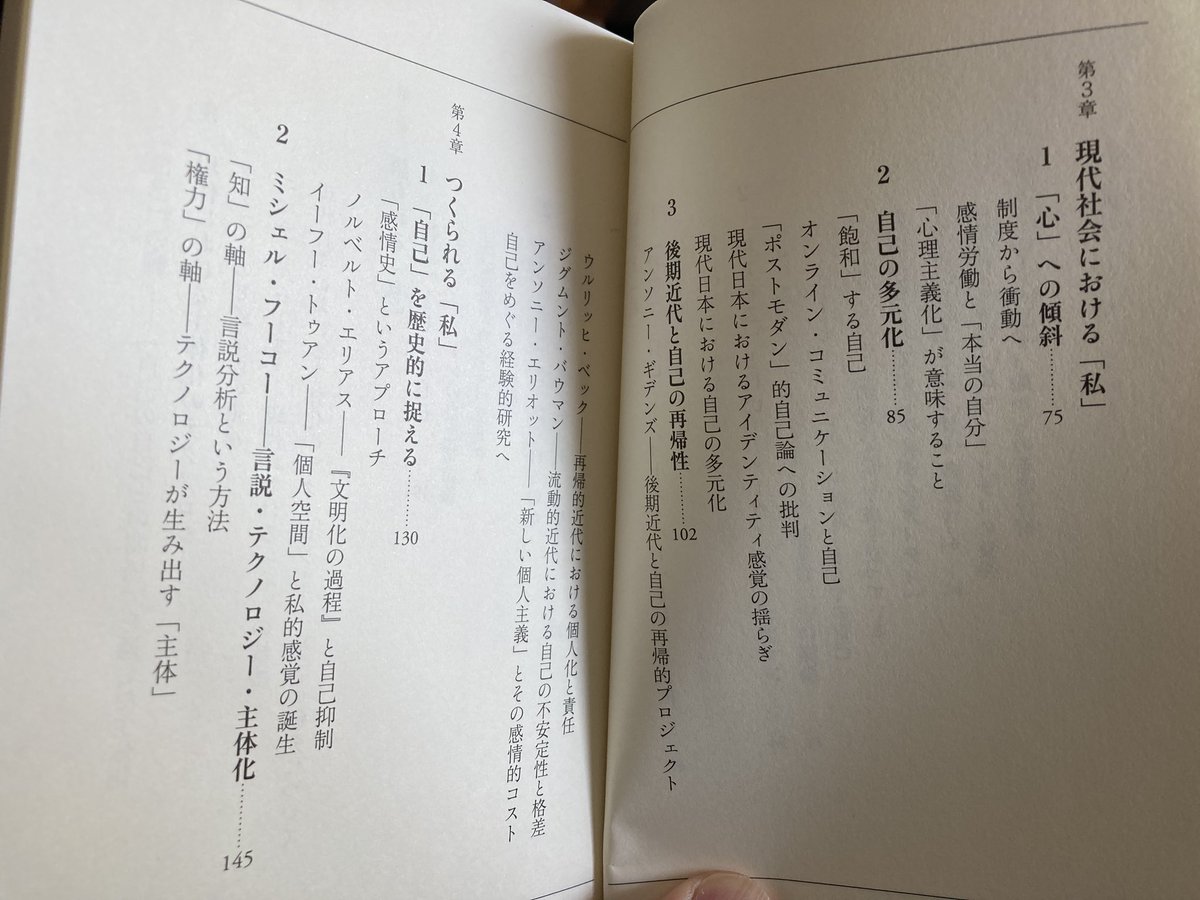 第3章 現代社会における「私」
1 「心」への傾斜…………75
制度から衝動へ
感情労働と「本当の自分」
「心理主義化」が意味すること
2 自己の多元化…………85
「飽和」する自己
オンライン・コミュニケーションと自己
「ポストモダン」的自己論への批判
現代日本におけるアイデンティティ感覚の揺らぎ
現代日本における自己の多元化
3 後期近代と自己の再帰性…………102
アンソニー・ギデンズ——後期近代と自己の再帰的プロジェクト
ウルリッヒ・ベック——再帰的近代における個人化と責任
ジグムント・バウマン——流動的近代における自己の不安定性と格差
アンソニー・エリオット——「新しい個人主義」とその感情的コスト
自己をめぐる経験的研究へ
第4章 つくられる「私」
1 「自己」を歴史的に捉える…………130
「感情史」というアプローチ
ノルベルト・エリアス——『文明化の過程』と自己抑制
イーフー・トゥアン——「個人空間」と私的感覚の誕生
2 ミシェル・フーコー——言説・テクノロジー・主体化…………145
「知」の軸——言説分析という方法
「権力」の軸——テクノロジーが生み出す「主体」